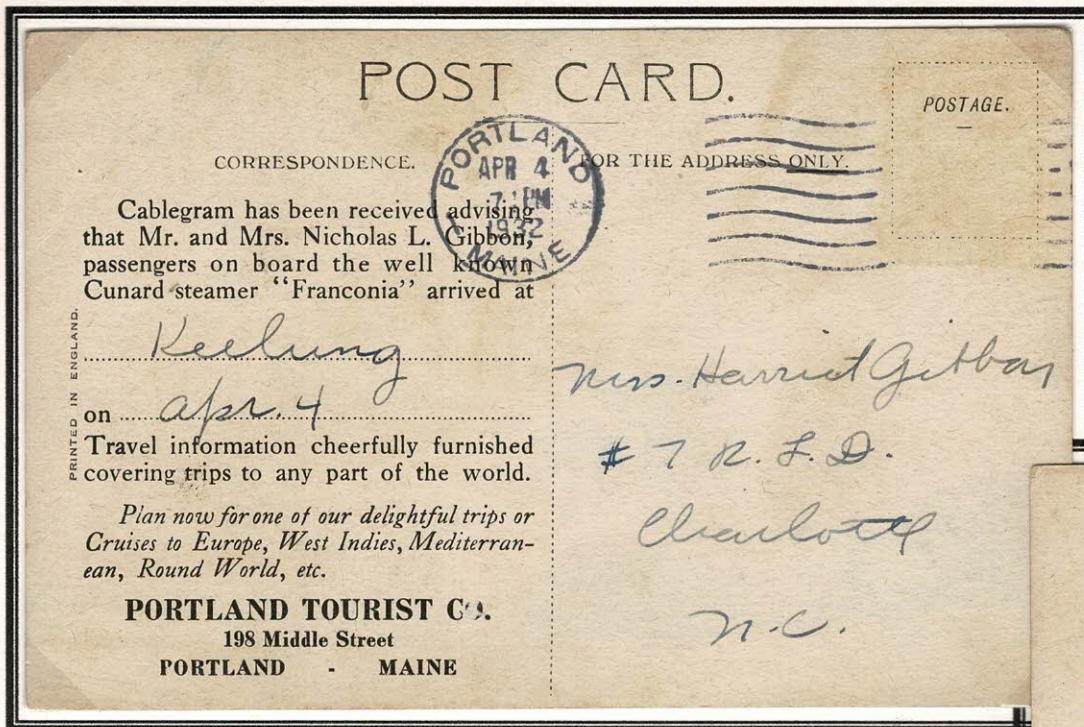 POST CARD.
POSTAGE.
CORRESPONDENCE.
FOR THE ADDRESS ONLY.
PORTLAND
APR 4
7 PM
1932
1
MAINE
Cablegram has been received advising
that Mr. and Mrs. Nicholas L. Gibbon,
passengers on board the well known
Cunard steamer “Franconia” arrived at
Keelung
on apr. 4
Travel information cheerfully furnished
covering trips to any part of the world.
Plan now for one of our delightful trips or
Cruises to Europe, West Indies, Mediterran-
ean, Round World, etc.
PORTLAND TOURIST CO.
198 Middle Street
PORTLAND - MAINE
PRINTED IN ENGLAND.
Harriet Gibbon
# 7 R. F. D.
Charlotte
N.C.